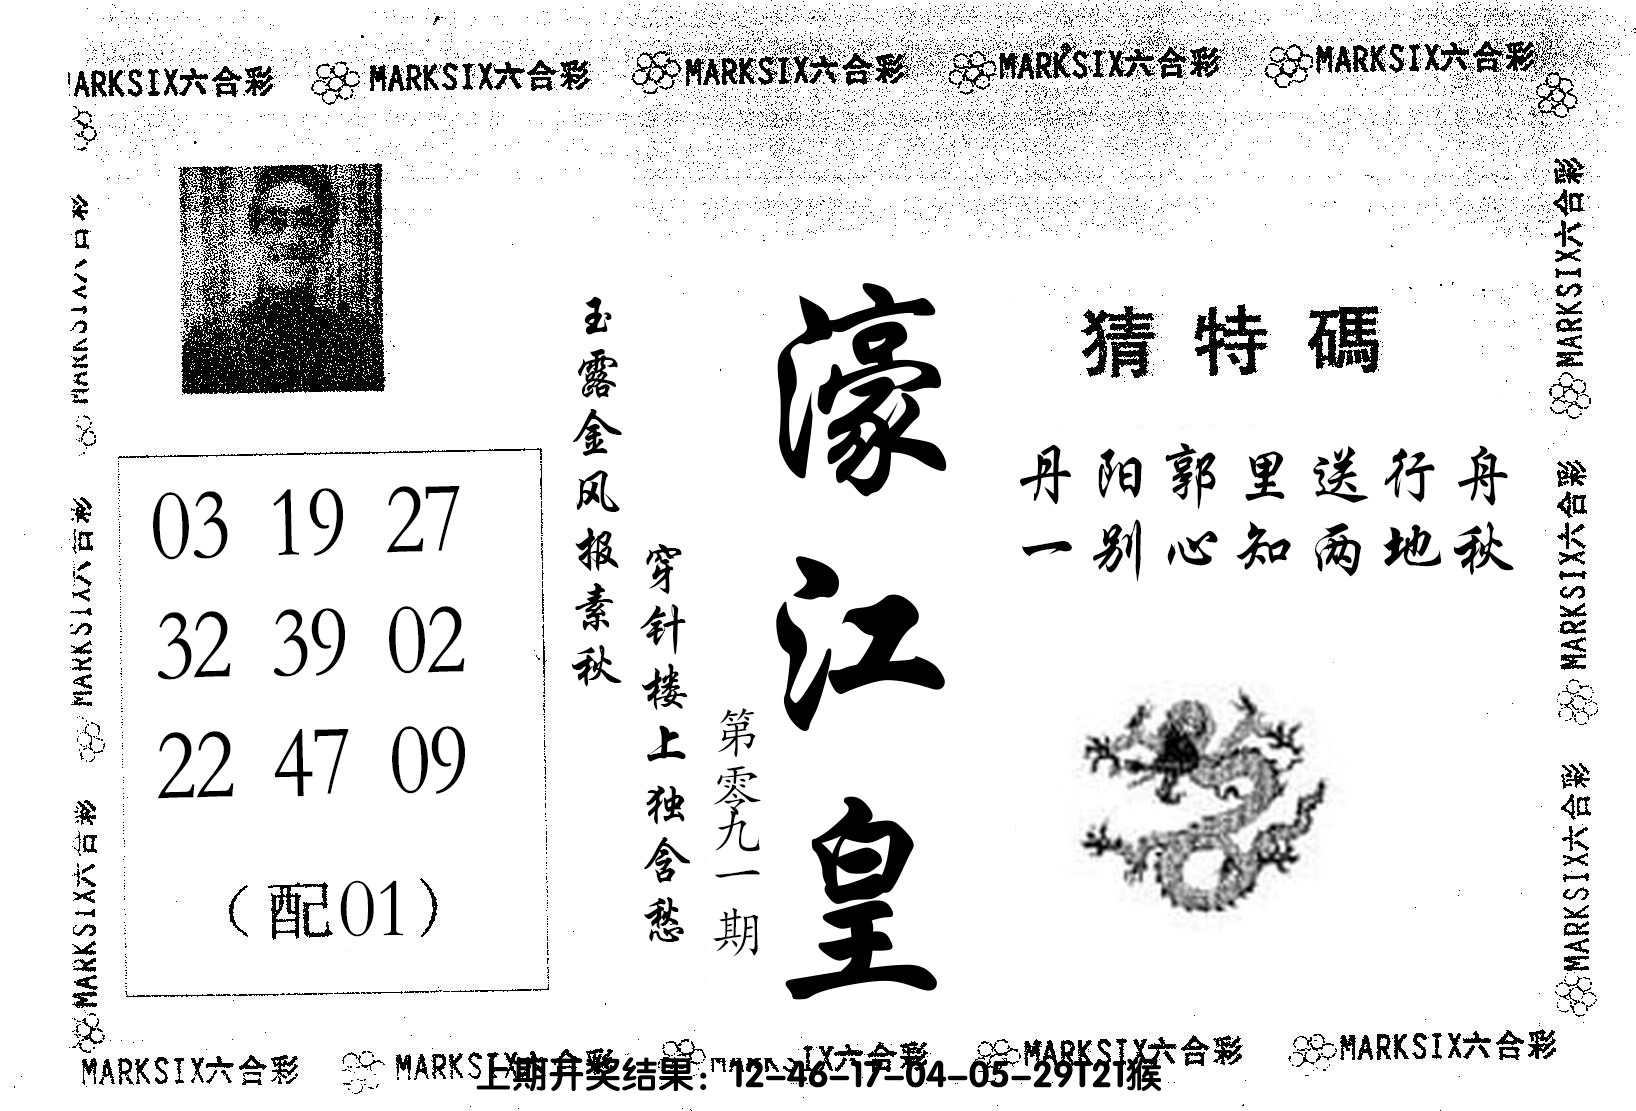 MARKSIX六合彩 MARKSIX六合彩 MARKSIX六合彩 MARKSIX六合彩 MARKSIX六合彩
MARKSIX六合彩
MARKSIX六合彩
MARKSIX六合彩
03 19 27
32 39 02
22 47 09
（配01）
玉露金风报素秋
穿针楼上独含愁
第零九一期
濠江皇
猜特碼
丹阳郭里送行舟
一别心知两地秋
MARKSIX六合彩
MARKSIX六合彩
MARKSIX六合彩
MARKSIX六合彩 MARKSIX六合彩 MARKSIX六合彩 MARKSIX六合彩 MARKSIX六合彩
上期开奖结果：12-46-17-04-05-29T21猴